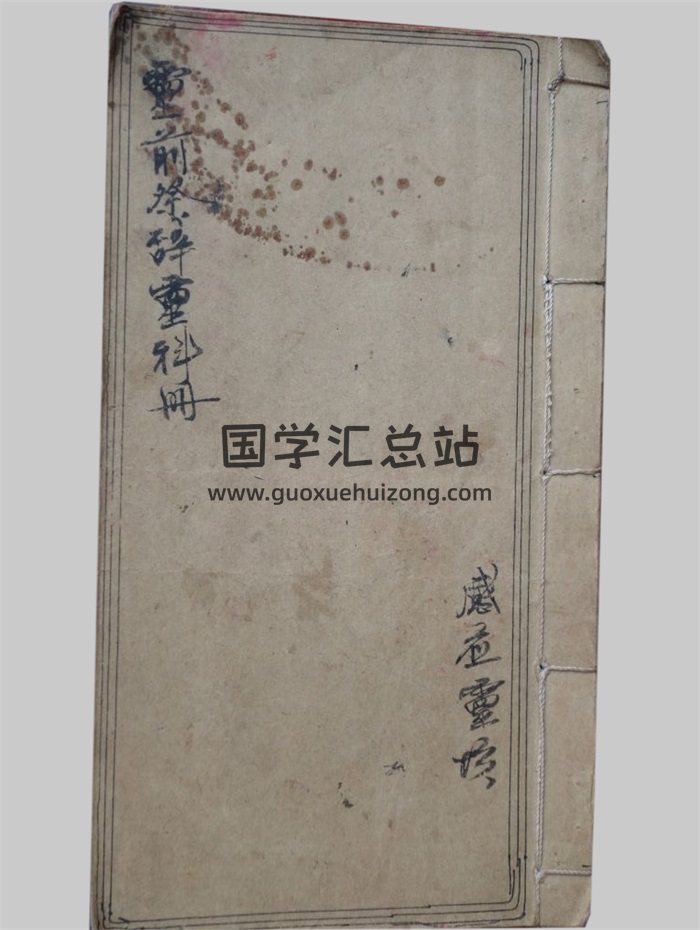 靈前祭辞靈科冊
国学汇总站
www.guoxuehuizong.com
感应靈